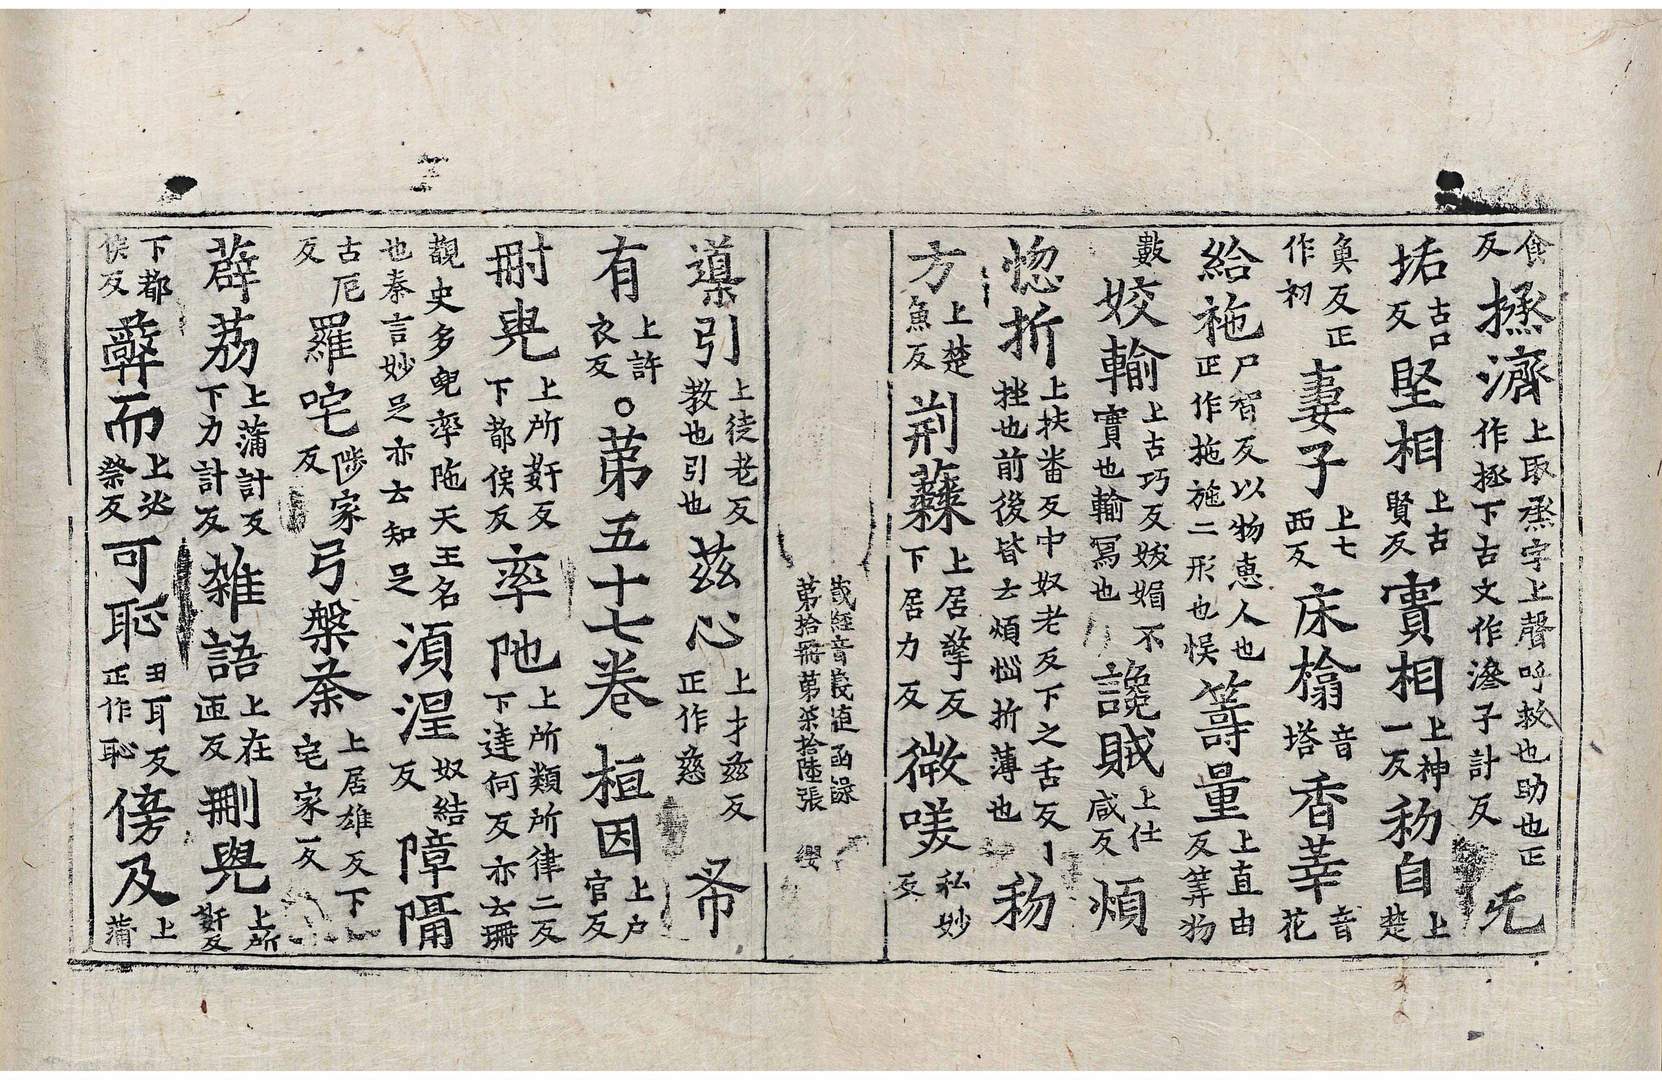 食反拯濟上取蒸字上聲呼救也助也正作拯下古文作㴉子計反旡
垢古口反堅相上古賢反實相上神一反秎自上楚
魚反正作初妻子上七西反床榻音塔香莘音花
給袘尸智反以物惠人也正作拖施二形也悮籌量上直由反筭物
數姣輸上古巧反妭媚不實也輸寫也讒賊上仕咸反煩
惚折上扶畨反中奴老反下之舌反丨挫也前後皆云煩惱折薄也秎
方上楚魚反荊蕀上居擎反下居力反微𠵊私妙反
藏經音義随函録第拾冊第柒拾陸張 纓
導引上徒老反教也引也茲心上才茲反正作慈希
有上許衣反。苐五十七卷桓因上户官反
𠛹㒵上所姧反下都侯反率阤上所類所律二反下達何反亦云珊
覩史多兜率陁天王名也秦言妙足亦云知足湏涅奴結反障隔
古厄反羅咤陟家反弓槃荼上居雄反下宅家反
薜荔上蒲計反下力計反雑語上在迊反刪㒵上所姧反
下都侯反弊而上毗祭反可恥丑耳反正作恥傍及上蒲